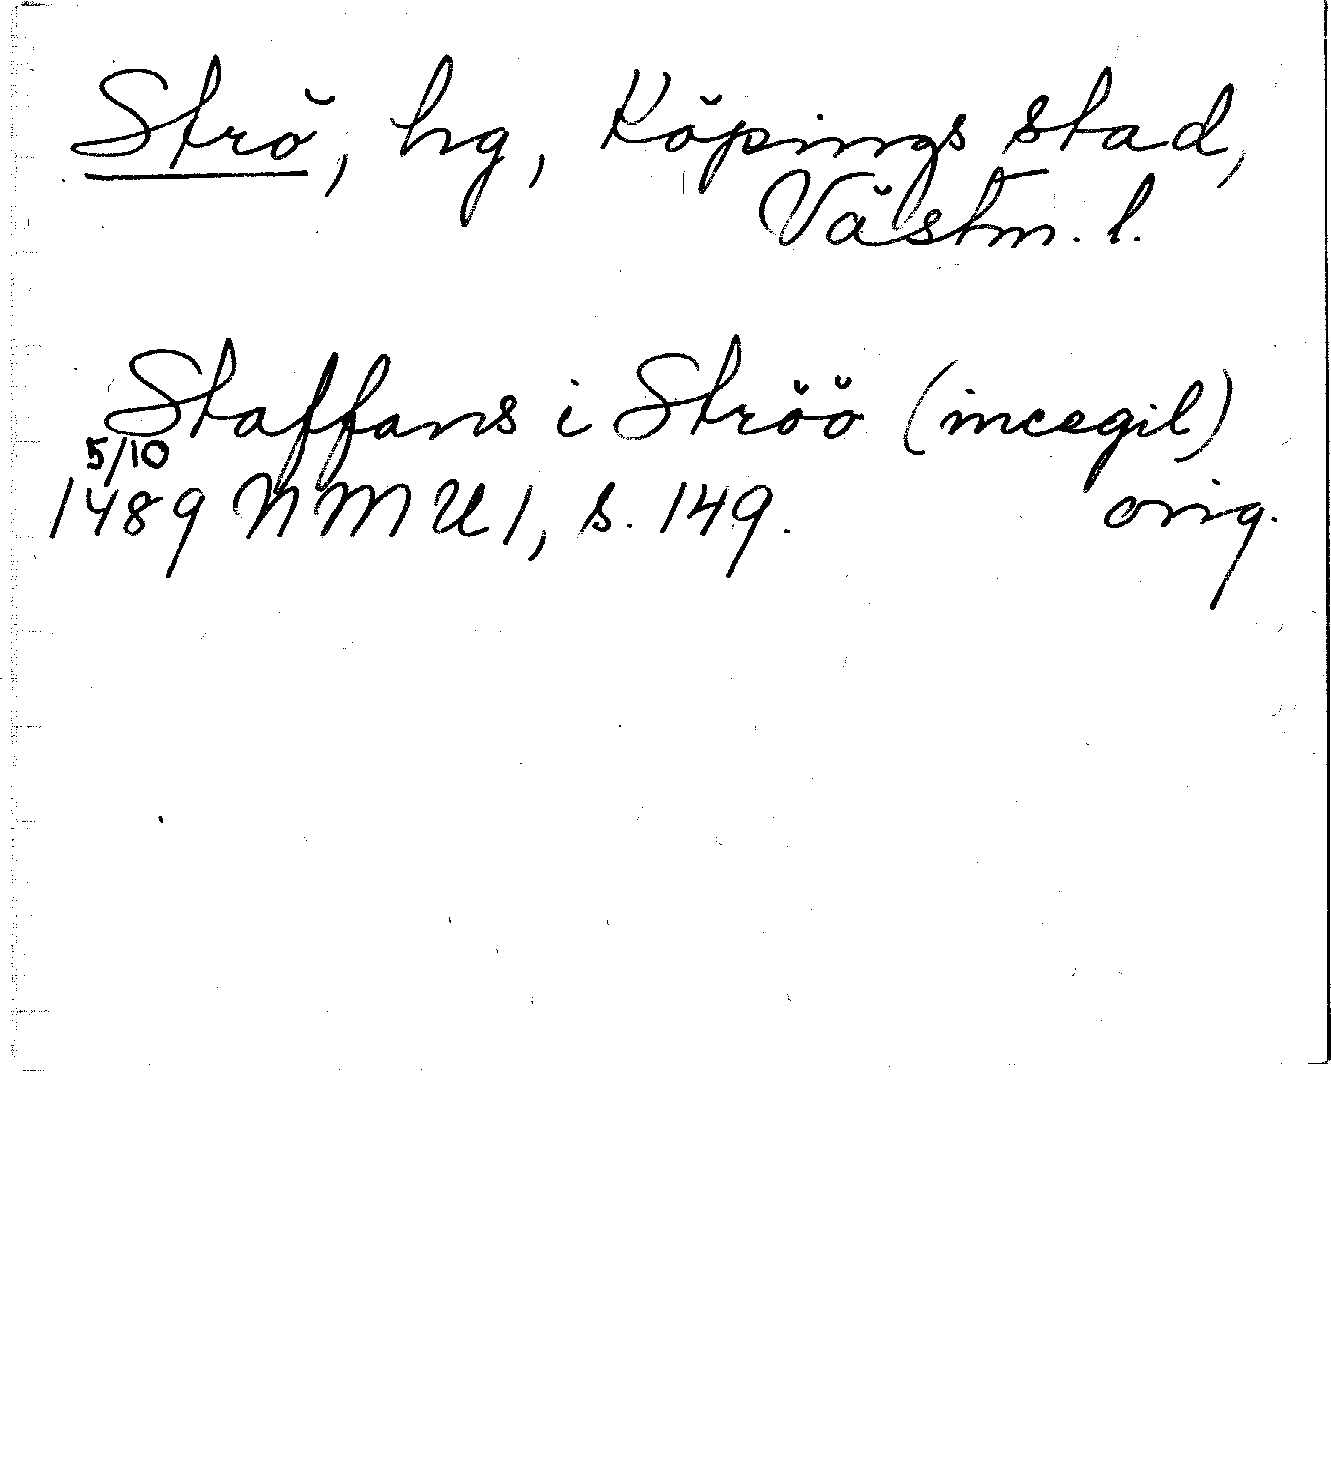 Strö, hg, Köpings stad,
Västm. l.
Staffans i Ströö (incegil)
5/10
1489 NMU 1, s. 149. orig.